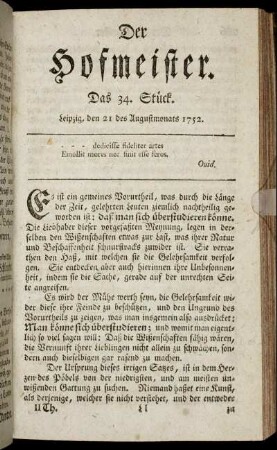 Der
Hofmeister.
Das 34. Stück.
Leipzig, den 21 des Augustmonats 1752.
- - - didicisse fideliter artes
Emollit mores nec sinit esse feros.
Ovid.
Es ist ein gemeines Vorurtheil, was durch die Länge
der Zeit, gelehrten Leuten ziemlich nachtheilig ge
worden ist: daß man sich überstudieren könne.
Die Liebhaber dieser vorgefaßten Meynung, legen in der-
selben den Wißenschaften etwas zur Last, was ihrer Natur
und Beschaffenheit schnurstracks zuwider ist. Sie verra-
then den Haß, mit welchen sie die Gelehrsamkeit verfol-
gen. Sie entdecken aber auch hierinnen ihre Unbesonnen-
heit, indem sie die Sache, gerade auf der unrechten Seite
angreifen.
Es wird der Mühe werth seyn, die Gelehrsamkeit wi-
der diese ihre Feinde zu beschützen, und den Ungrund des
Vorurtheils zu zeigen, was man insgemein also ausdrücket:
Man könne sich überstudieren; und womit man eigent-
lich so viel sagen will: Daß die Wißenschaften fähig wären,
die Vernunft ihrer Lieblinge nicht allein zu schwächen, son-
dern auch dieselbigen gar rasend zu machen.
Der Ursprung dieses irrigen Satzes, ist in dem Her-
zen des Pöbels von der niedrigsten, und am meisten un-
wißenden Gattung zu suchen. Niemand haßet eine Kunst,
als derjenige, welcher sie nicht verstehet, und der entweder
II Th. L l zu